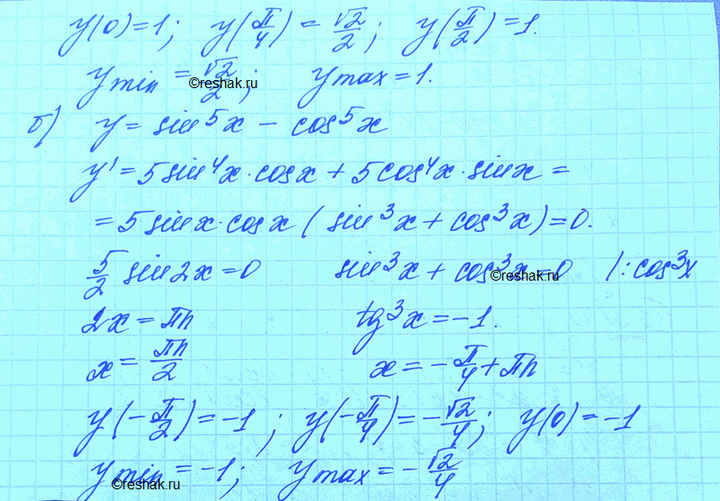 y(0)=1; y(π/4)=√2/2; y(π/2)=1.
y min = √2/2; y max = 1.
©reshak.ru
б) y = sin⁵x − cos⁵x
y' = 5sin⁴x·cosx + 5cos⁴x·sinx =
= 5sinx·cosx (sin³x + cos³x) = 0.
5/2 sin2x = 0 sin³x + cos³x = 0 |:cos³x
©reshak.ru
2x = πn tg³x = −1.
x = πn/2 x = −π/4 + πn
y(−π/2) = −1; y(−π/4) = −√2/4; y(0) = −1
y min = −1; y max = −√2/4
©reshak.ru